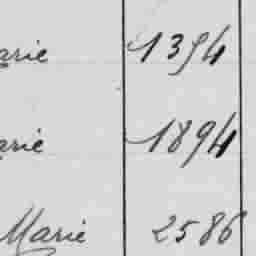 arie 1394
arie 1894
Marie 2586